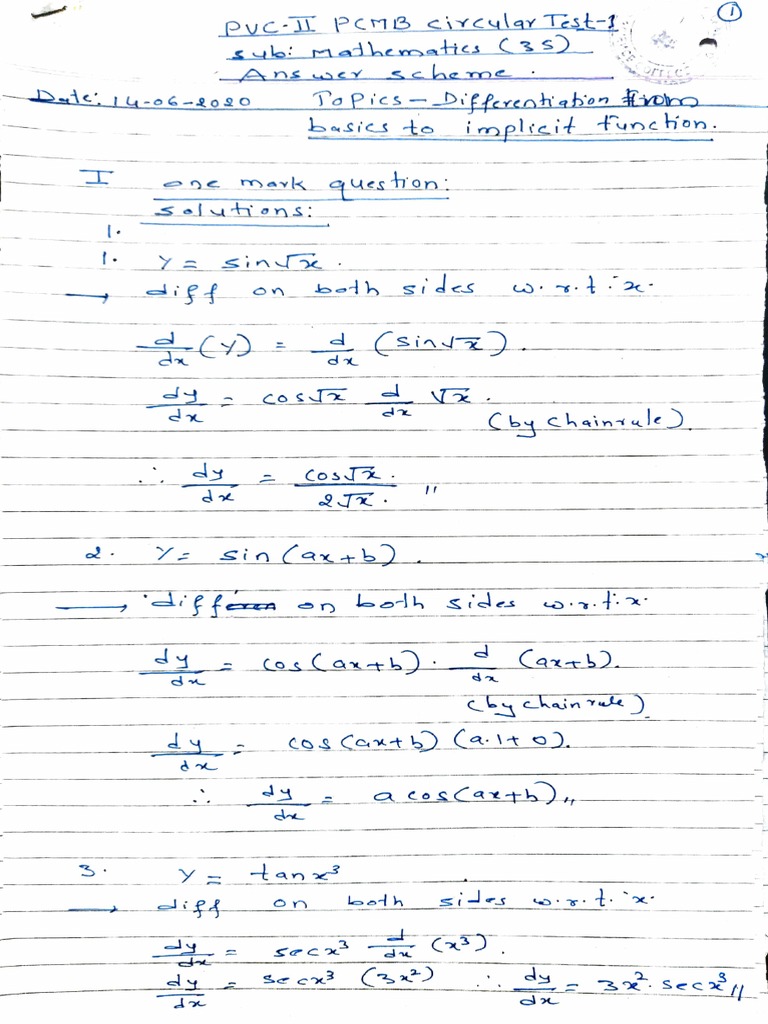 ①
PUC-II PCMB Circular Test-1
Sub: Mathematics (35)
Answer scheme.
Date: 14-06-2020 Topics - Differentiation from
basics to implicit function.
I one mark question:
solutions:
1.
1. Y = sin√x.
→ diff on both sides w.r.t. x.
d/dx (Y) = d/dx (sin√x).
dy/dx = cos√x d/dx √x.
(by chainrule)
∴ dy/dx = cos√x./2√x. "
2. Y = sin(ax+b).
→ diff on both sides w.r.t. x.
dy/dx = cos(ax+b). d/dx (ax+b).
(by chainrule)
dy/dx = cos(ax+b) (a.1+0).
∴ dy/dx = a cos(ax+b)"
3. Y = tanx³
→ diff on both sides w.r.t. x.
dy/dx = secx³ d/dx (x³).
dy/dx = secx³ (3x²) ∴ dy/dx = 3x². secx³"